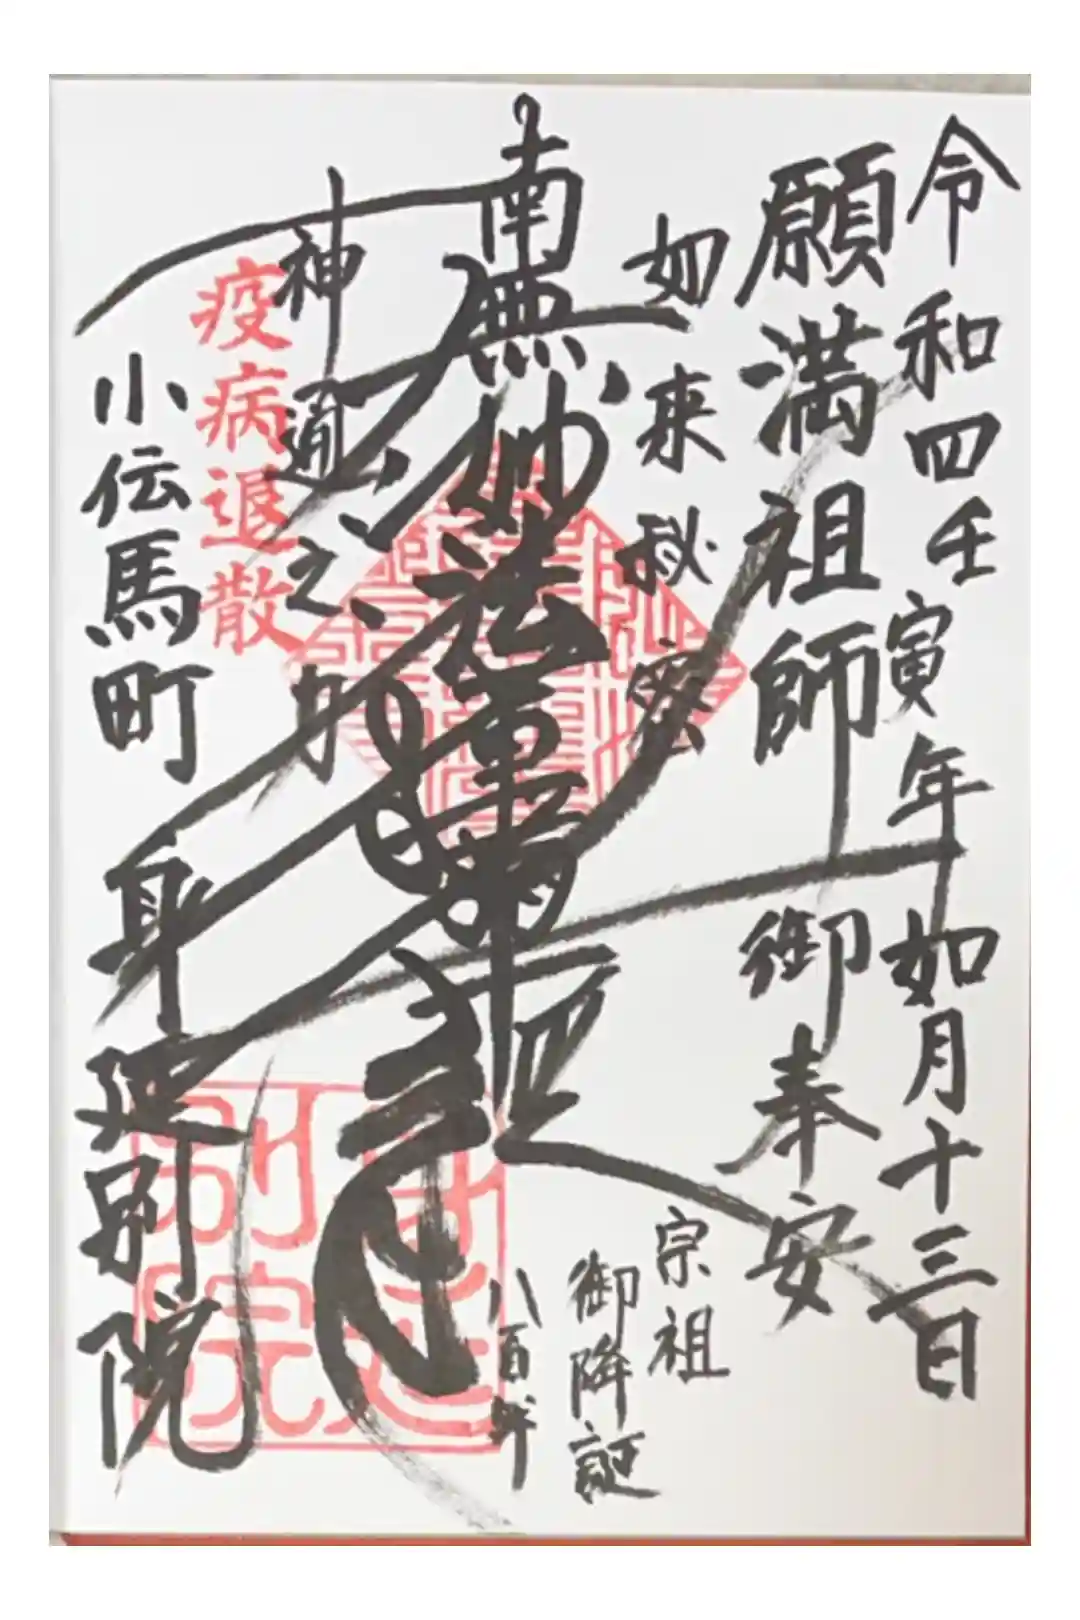 令和四壬寅年如月十三日
願満祖師 御奉安
如来秘密
宗祖
御降誕
八百年
南無妙法蓮華経
神通之力
疫病退散
小伝馬町
身延別院